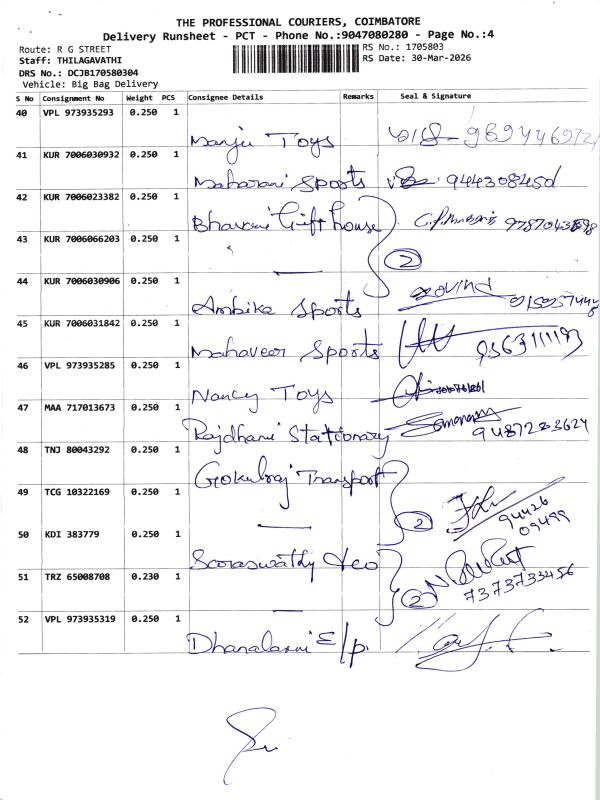 THE PROFESSIONAL COURIERS, COIMBATORE
Delivery Runsheet - PCT - Phone No.:9047080280 - Page No.:4
Route: R G STREET
Staff: THILAGAVATHI
DRS No.: DCJB170580304
Vehicle: Big Bag Delivery
RS No.: 1705803
RS Date: 30-Mar-2026
S No Consignment No Weight PCS Consignee Details Remarks Seal & Signature
40 VPL 973935293 0.250 1 Manju Toys
41 KUR 7006030932 0.250 1 Maharani Sports
42 KUR 7006023382 0.250 1 Bhavani Gift house
43 KUR 7006066203 0.250 1 — 2
44 KUR 7006030906 0.250 1 Ambika Sports
45 KUR 7006031842 0.250 1 Mahaveer Sports 9363111193
46 VPL 973935285 0.250 1 Nancy Toys
47 MAA 717013673 0.250 1 Rajdhani Stationary 9487283624
48 TNJ 80043292 0.250 1 Gokulraj Transport
49 TCG 10322169 0.250 1 — 2 94426 09499
50 KDI 383779 0.250 1 Saraswathy
51 TRZ 65008708 0.230 1 — 2 7373733456
52 VPL 973935319 0.250 1 Dhanalaxmi E/p.